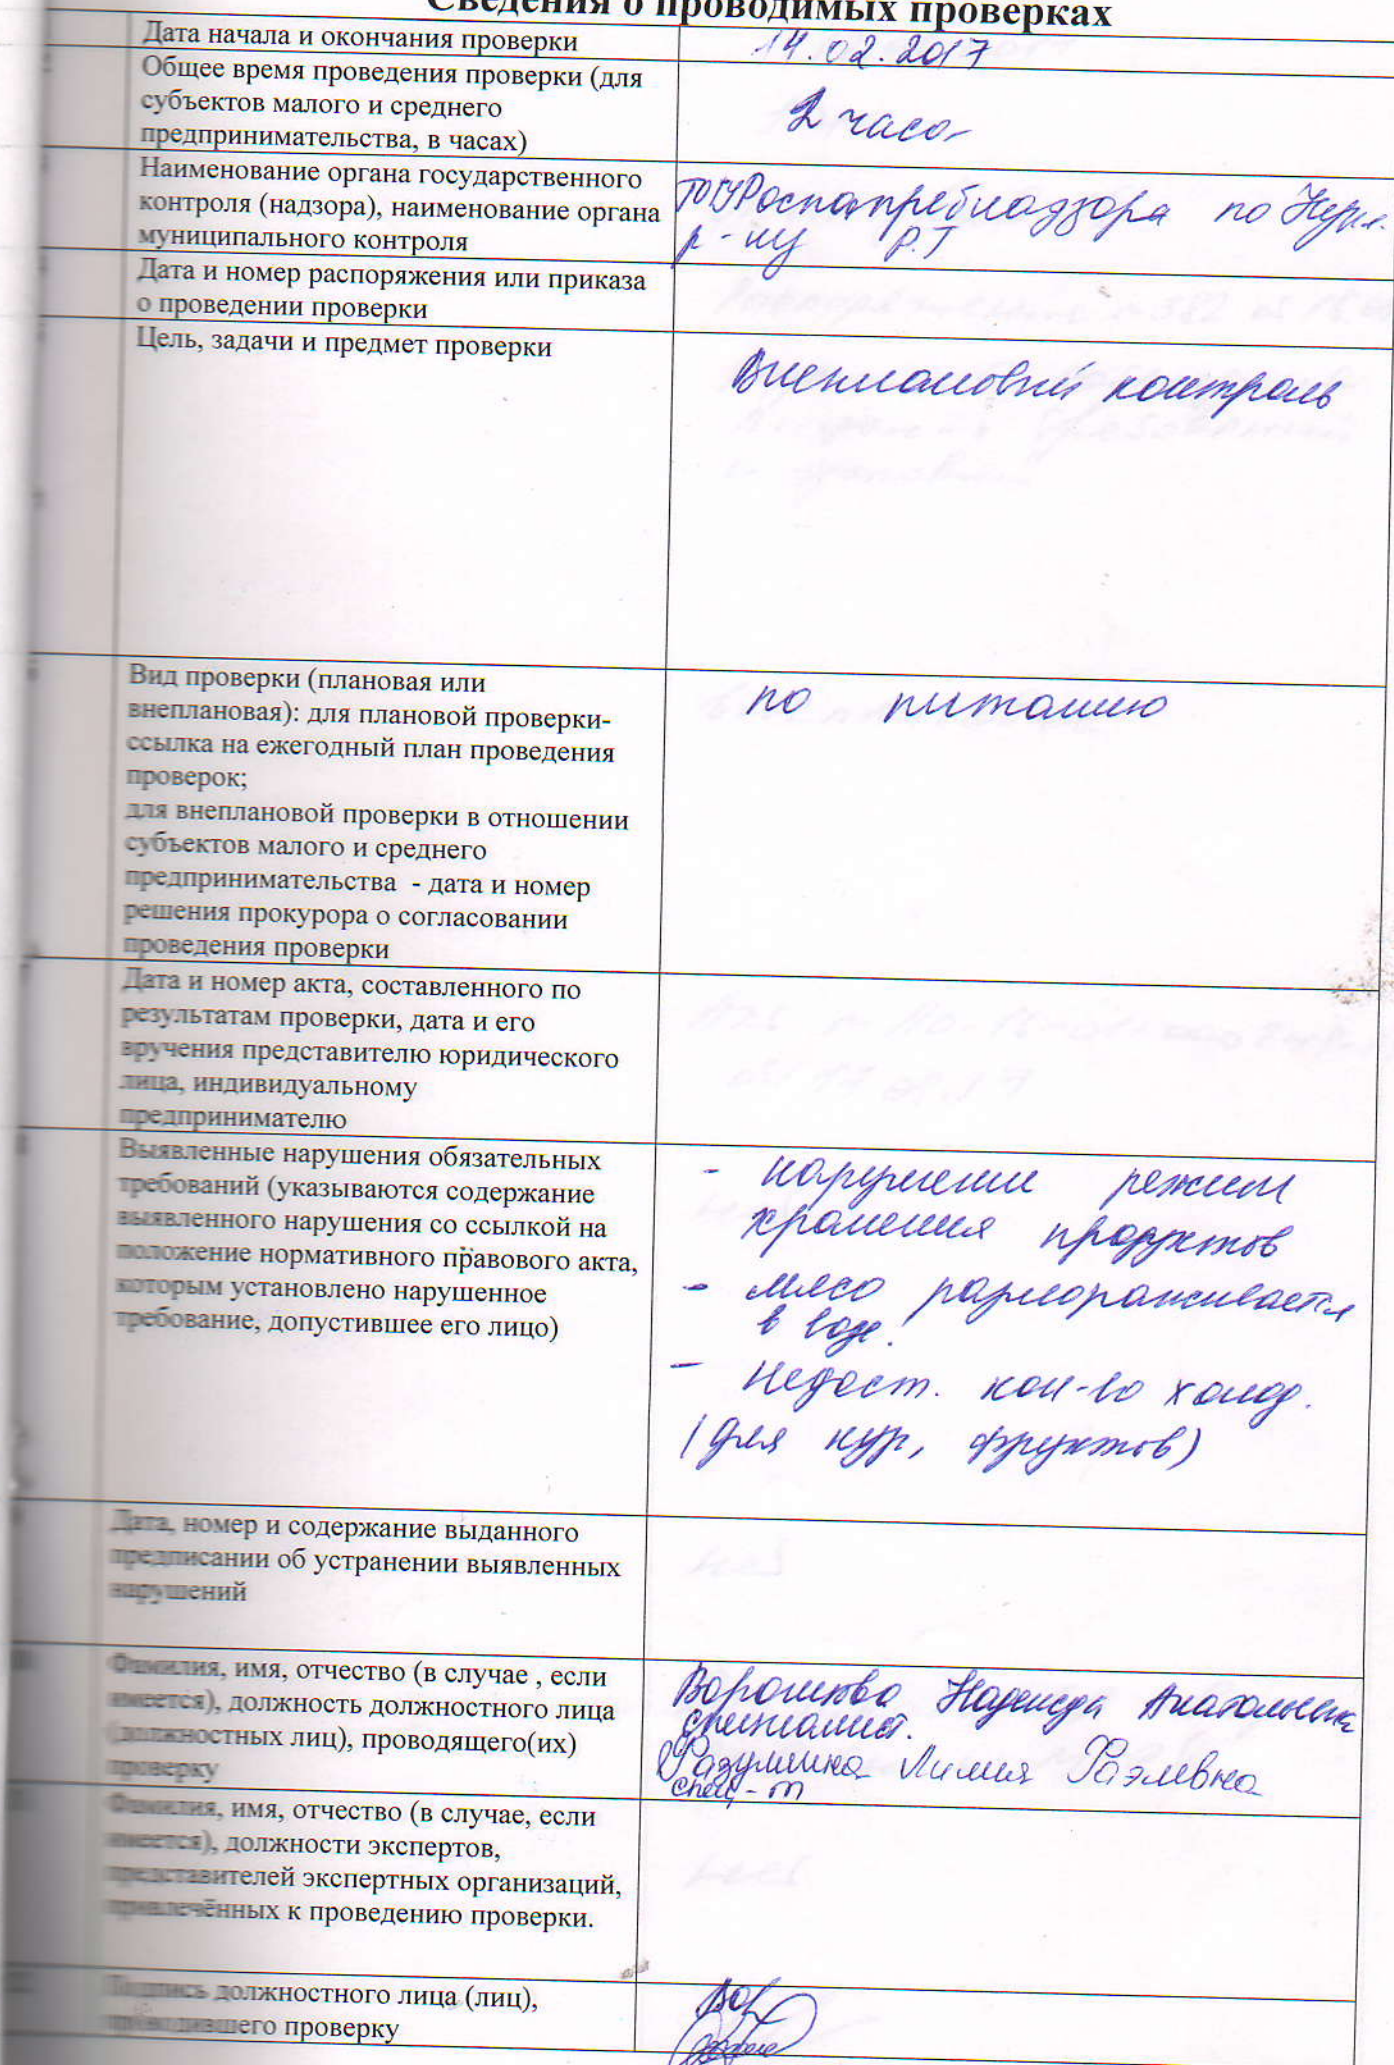 Сведения о проводимых проверках
Дата начала и окончания проверки
14.02.2017
Общее время проведения проверки (для
субъектов малого и среднего
предпринимательства, в часах)
2 часа
Наименование органа государственного
контроля (надзора), наименование органа
муниципального контроля
ТОУ Роспотребнадзора по Нурл.
р-ну Р.Т
Дата и номер распоряжения или приказа
о проведении проверки
Цель, задачи и предмет проверки
Внеплановый контроль
Вид проверки (плановая или
внеплановая): для плановой проверки-
ссылка на ежегодный план проведения
проверок;
для внеплановой проверки в отношении
субъектов малого и среднего
предпринимательства - дата и номер
решения прокурора о согласовании
проведения проверки
по питанию
Дата и номер акта, составленного по
результатам проверки, дата и его
вручения представителю юридического
лица, индивидуальному
предпринимателю
Выявленные нарушения обязательных
требований (указываются содержание
выявленного нарушения со ссылкой на
положение нормативного правового акта,
которым установлено нарушенное
требование, допустившее его лицо)
- нарушении режим
хранения продуктов
- мясо размораживается
в воде.
- недост. кол-во холод.
(для кур, фруктов)
Дата, номер и содержание выданного
предписании об устранении выявленных
нарушений
Фамилия, имя, отчество (в случае , если
имеется), должность должностного лица
(должностных лиц), проводящего(их)
проверку
Надежда Анатольевна
специалист.
Лилия Фаэлевна
спец-т
Фамилия, имя, отчество (в случае, если
имеется), должности экспертов,
представителей экспертных организаций,
привлечённых к проведению проверки.
Подпись должностного лица (лиц),
проводившего проверку